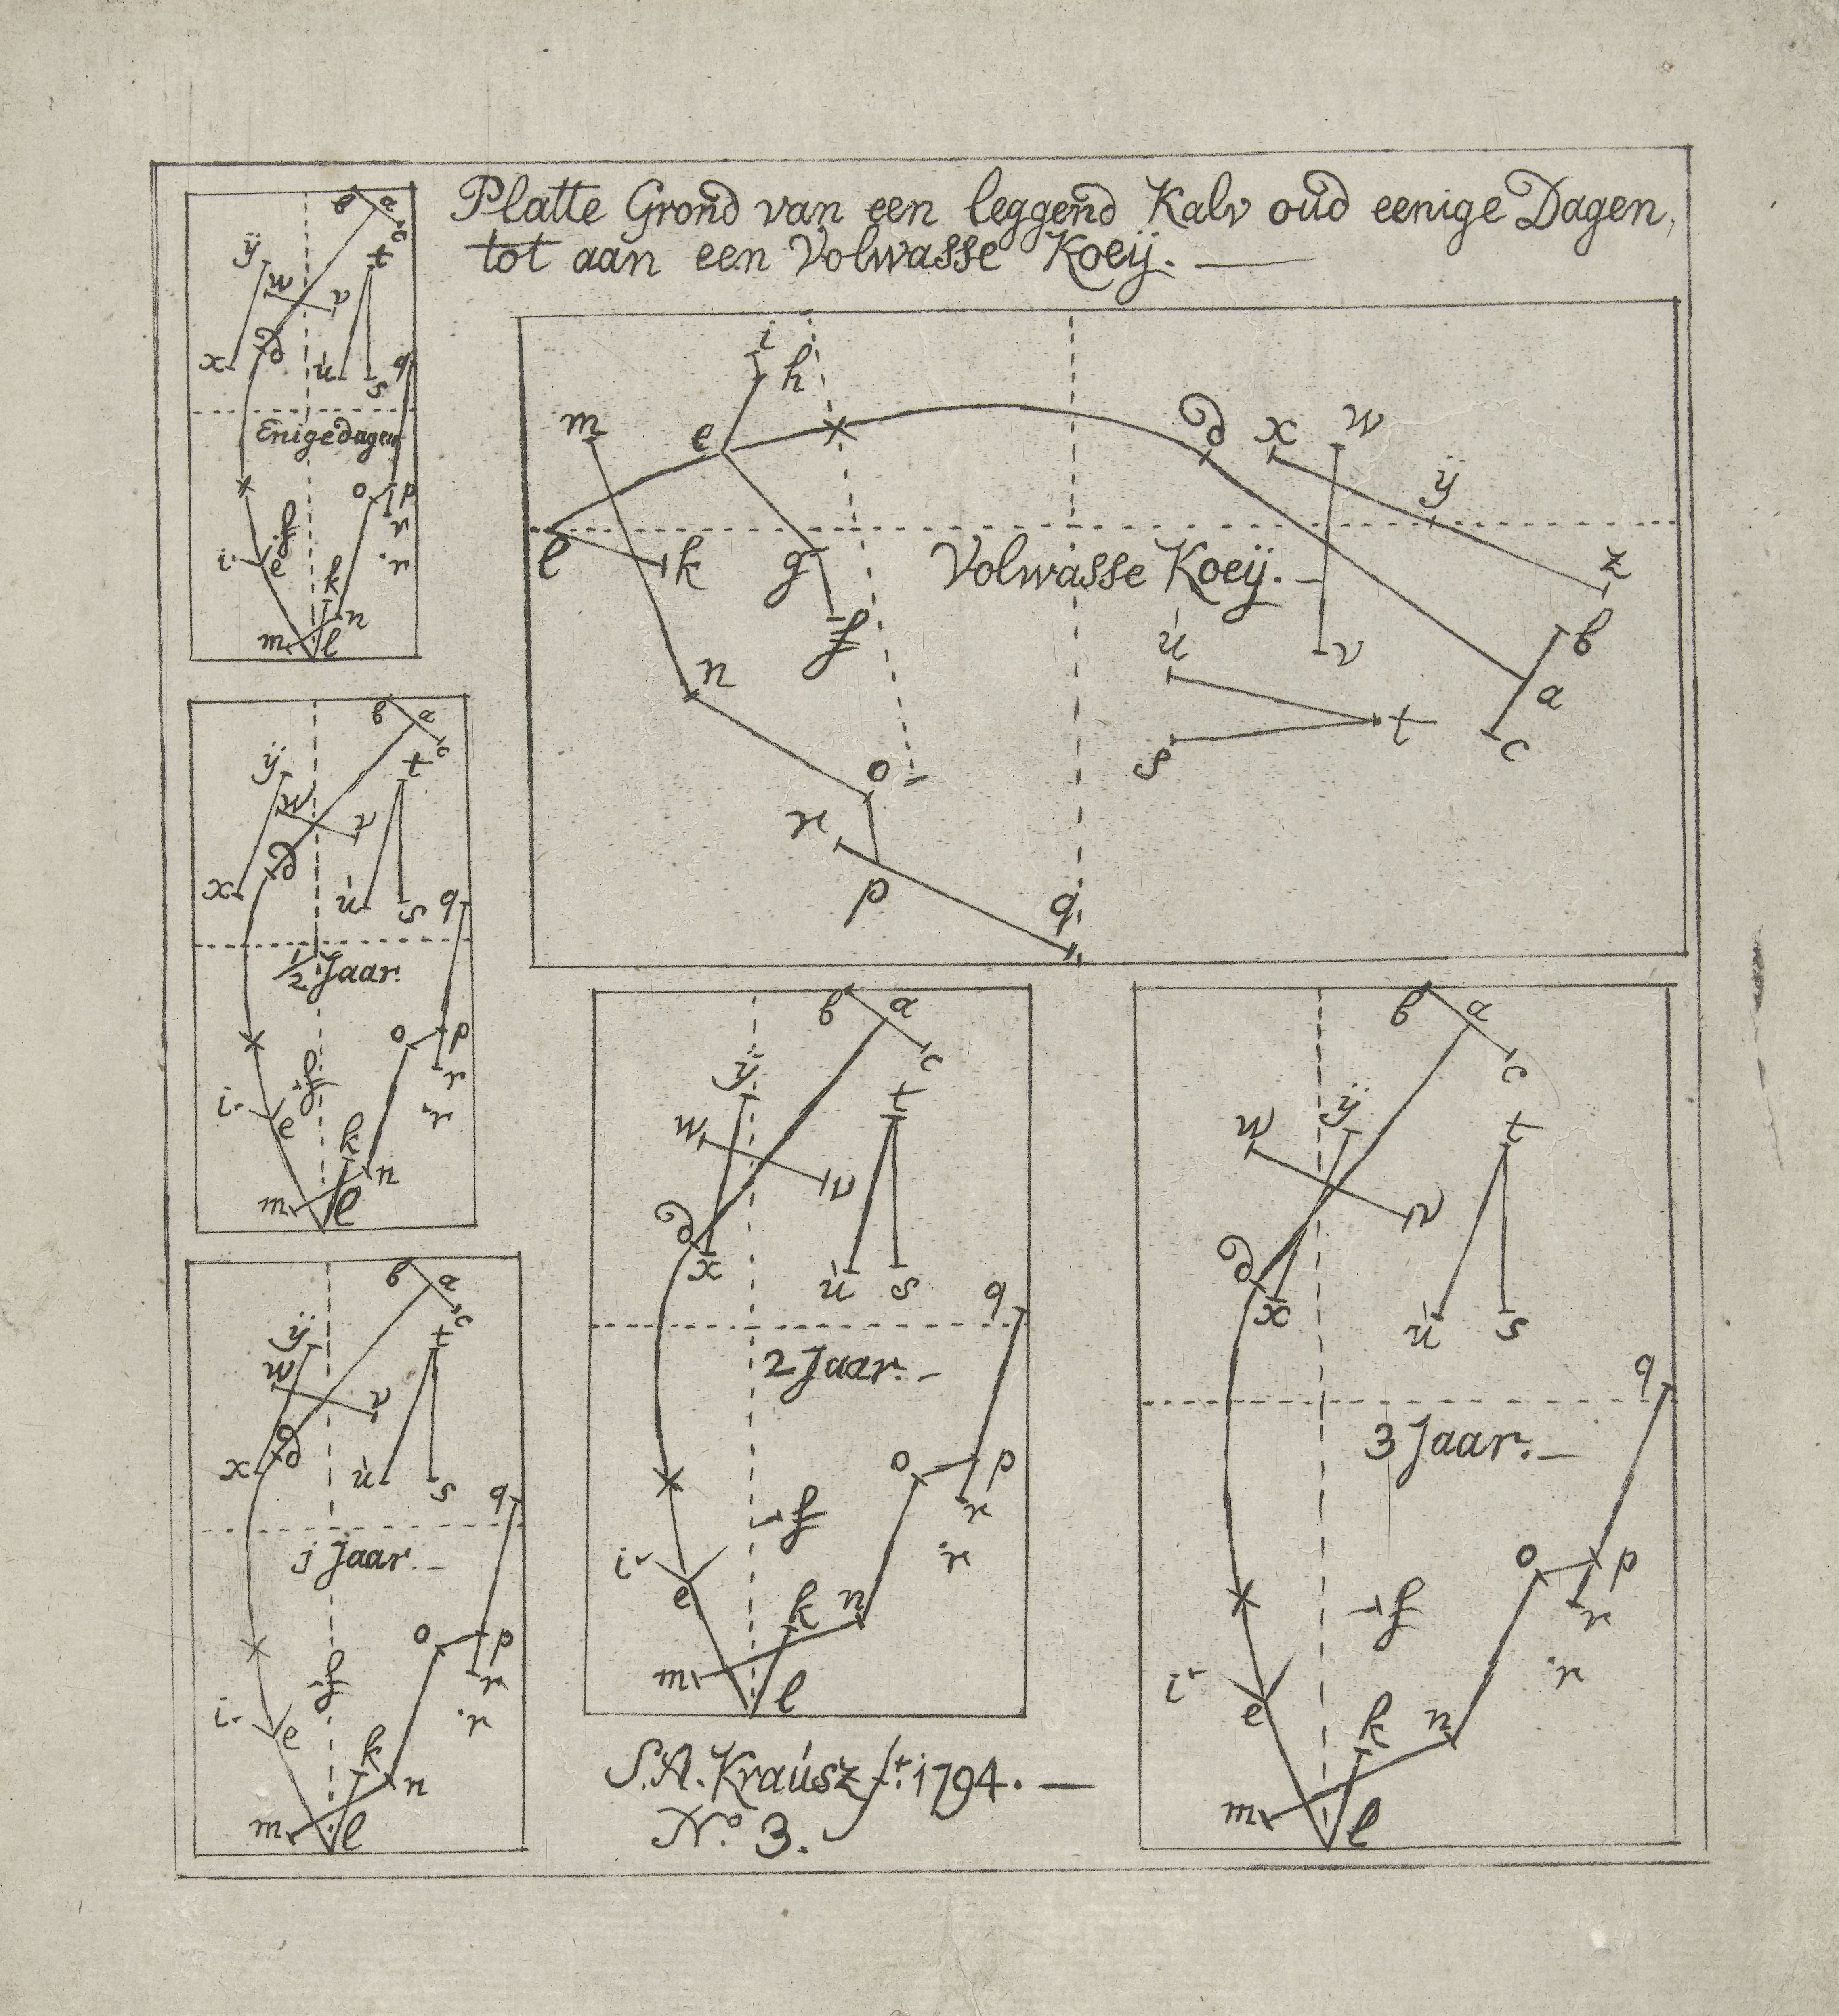 Platte Grond van een leggend Kalv oud eenige Dagen,
tot aan een Volwasse Koeÿ. —
b a c
ÿ t
w v
x d u s q
Enige dagen
o p
r
f
i e r
k
m l n
i
h
m e d x w
ÿ
l k g Volwasse Koeÿ. — z
f u v b
n a
s t c
o
r
p q
b a c
ÿ t
w v
d
x u s q
1/2 Jaar.
o p
r
f
i e r
k
m l n
b a c
ÿ t
w v
d
x u s q
j Jaar. —
o p
r
f
i e r
k
m l n
b a c
ÿ t
w v
d
x u s q
2 Jaar. —
o p
r
f
i e r
k n
m l
b a c
ÿ t
w v
d
x u s
q
3 Jaar. —
o p
r
f
i e r
k n
m l
S. A. Kraúsz ft. 1794. —
No. 3.